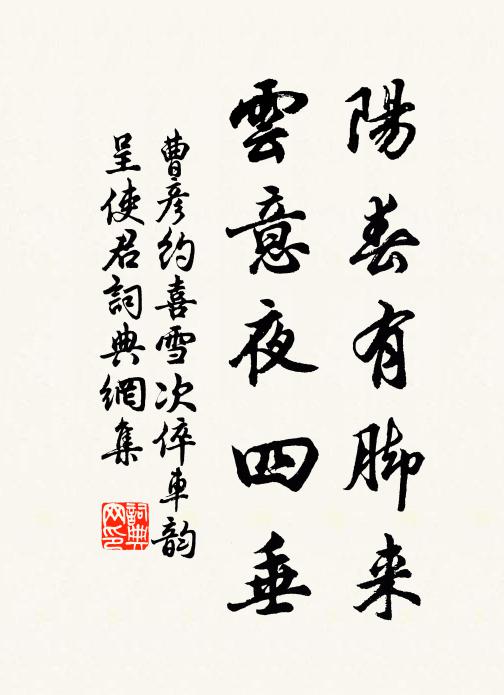 陽春有脚来
雲意夜四垂
曹彦約喜雪次倅車韵
呈使君詞典網集
詞典网印